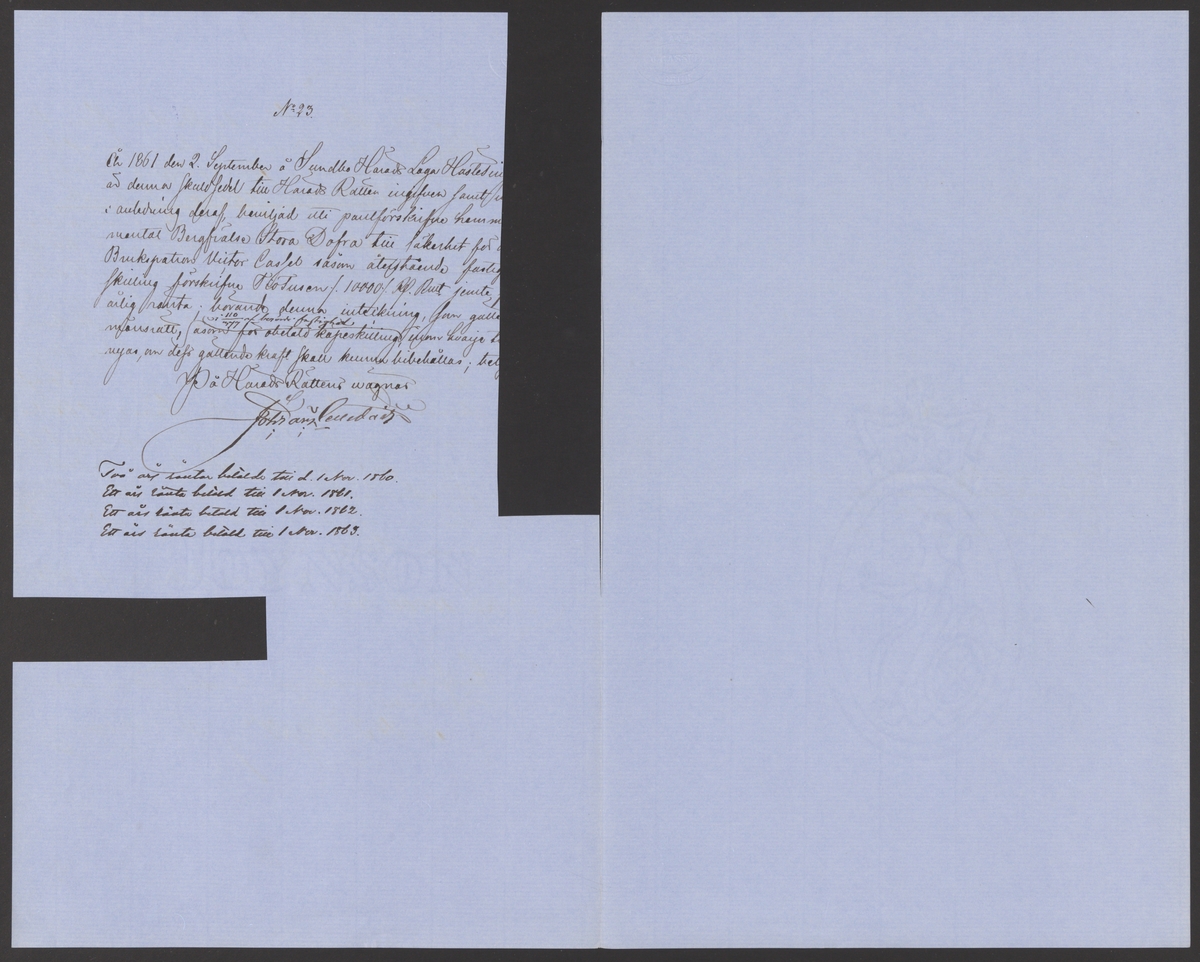 N:o 23.
År 1861 den 2. September å Sundbo Härads Laga Hösteting
är denna skuldsedel till Härads Rätten ingifven samt
i anledning deraf, beviljad uti pantförskrifne hemm
mental Bergfrälse Stora Dofra till säkerhet för
Brukspatron Victor Cassel såsom återstående fastig
skilling förskrifne Tiotusen /:10000:/ Rd. Rmt jemte
årlig ränta; hörande denna inteckning, som gäller
i 110/447 berörde fastighet
månsrätt, såsom för obetald köpeskilling, inom hvarje
nyas, om dess gällande kraft skall kunna bibehållas;
På Härads Rättens wägnar
Johan
Två års räntor betalde till d. 1 Nov. 1860.
Ett års ränta betald till 1 Nov. 1861.
Ett års ränta betald till 1 Nov. 1862.
Ett års ränta betald till 1 Nov. 1863.